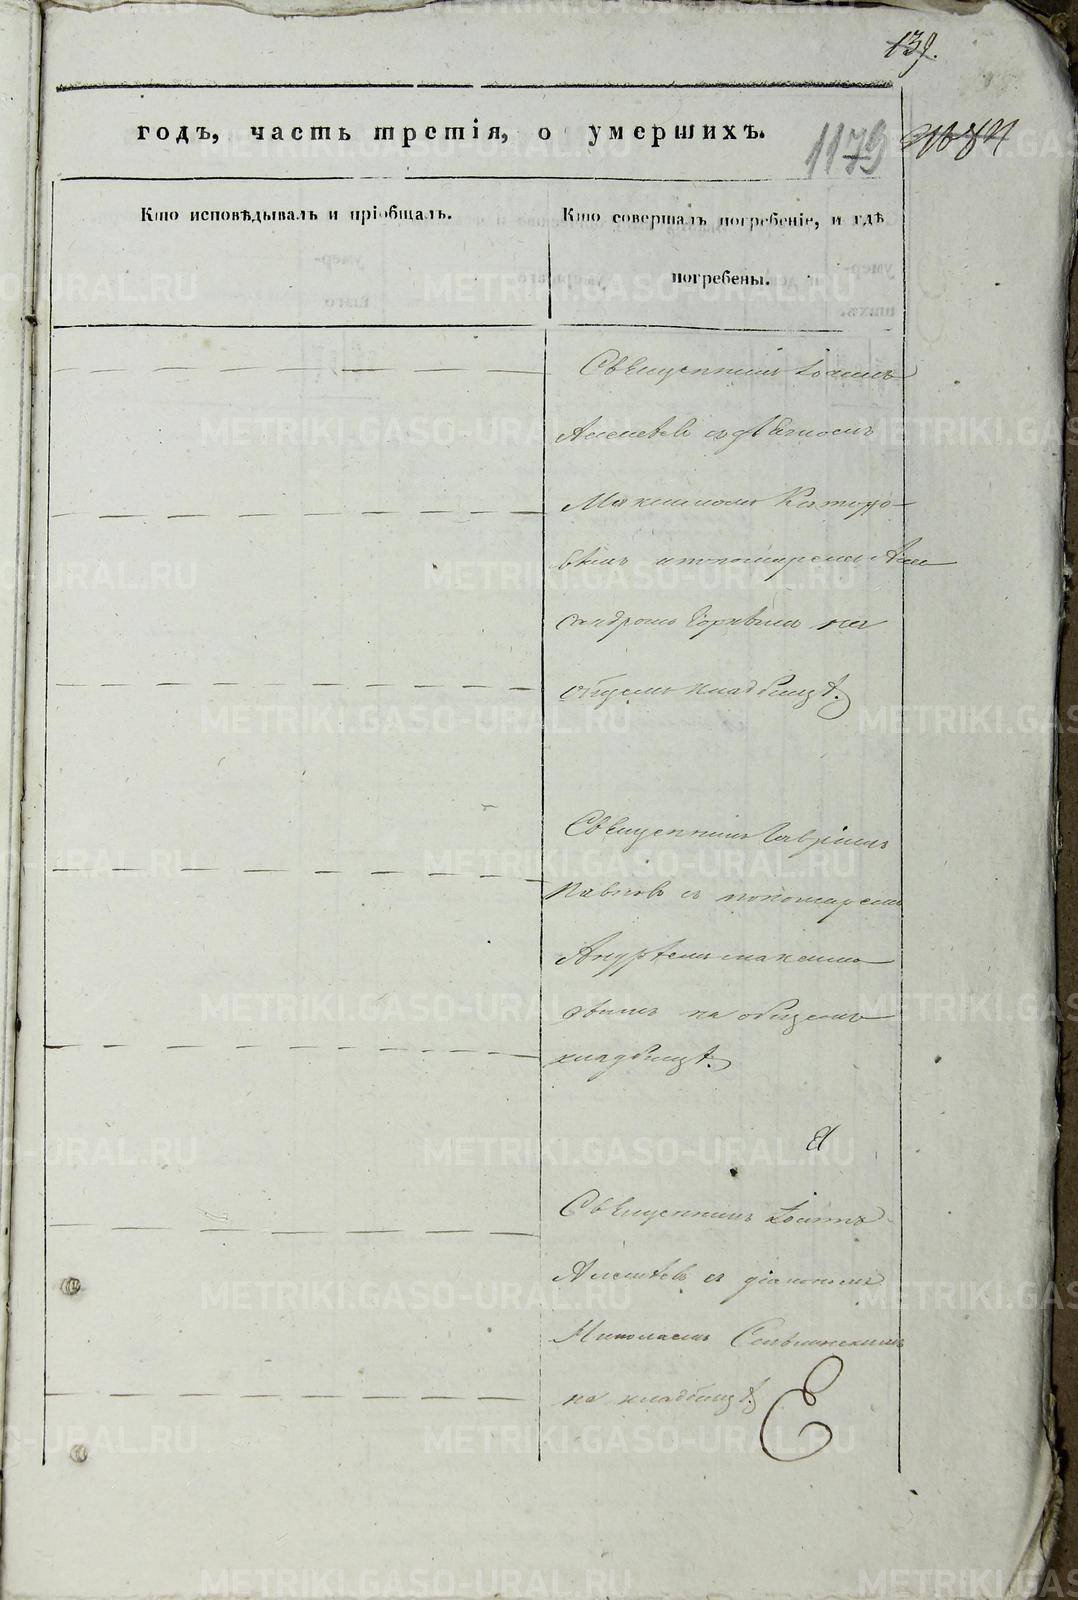 139.
годъ, часть третія, о умершихъ.
1179
Кто исповѣдывалъ и пріобщалъ.
Кто совершалъ погребеніе, и гдѣ
погребены.
Священникъ Іоаннъ
Алексѣевъ съ діакономъ
Максимомъ
вымъ и пономаремъ Алек
сандромъ на
общемъ кладбищѣ.
Священникъ Гавріилъ
Павловъ съ пономаремъ
Андрѣемъ Максимо
вымъ на общемъ
кладбищѣ.
Священникъ Іоаннъ
Алексѣевъ съ діакономъ
Николаемъ
на кладбищѣ.
METRIKI.GASO-URAL.RU